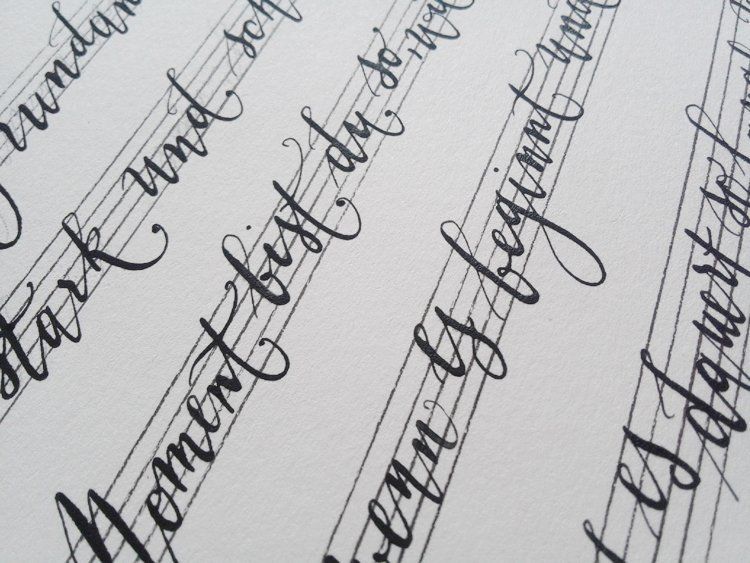 rundan
stark und sch
Moment bist du so, wu
wenn es beginnt und
es dauert so